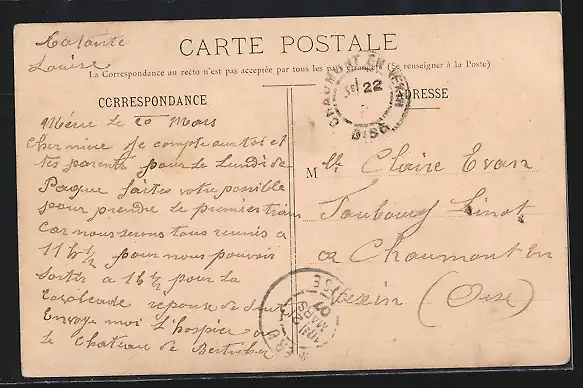 La tante
Louise
CARTE POSTALE
La Correspondance au recto n'est pas acceptée par tous les pays étrangers (Se renseigner à la Poste)
CORRESPONDANCE
ADRESSE
CHAUMONT EN VEXIN
22
OISE
Méru le 20 Mars
Cher mice Je compte sur toi et
tes parents pour le Lundi de
Paque faites votre possible
pour prendre le premier train
Car nous serons tous reunis a
11 h ½ pour nous pouvoir
sortir a 1 h ½ pour la
Cavalcade reponse de
Envoye moi l'hospice ou
le Chateau de
Mlle Claire Evan
Faubourg Linot
a Chaumont en
Vexin (Oise)
OISE
MARS
07